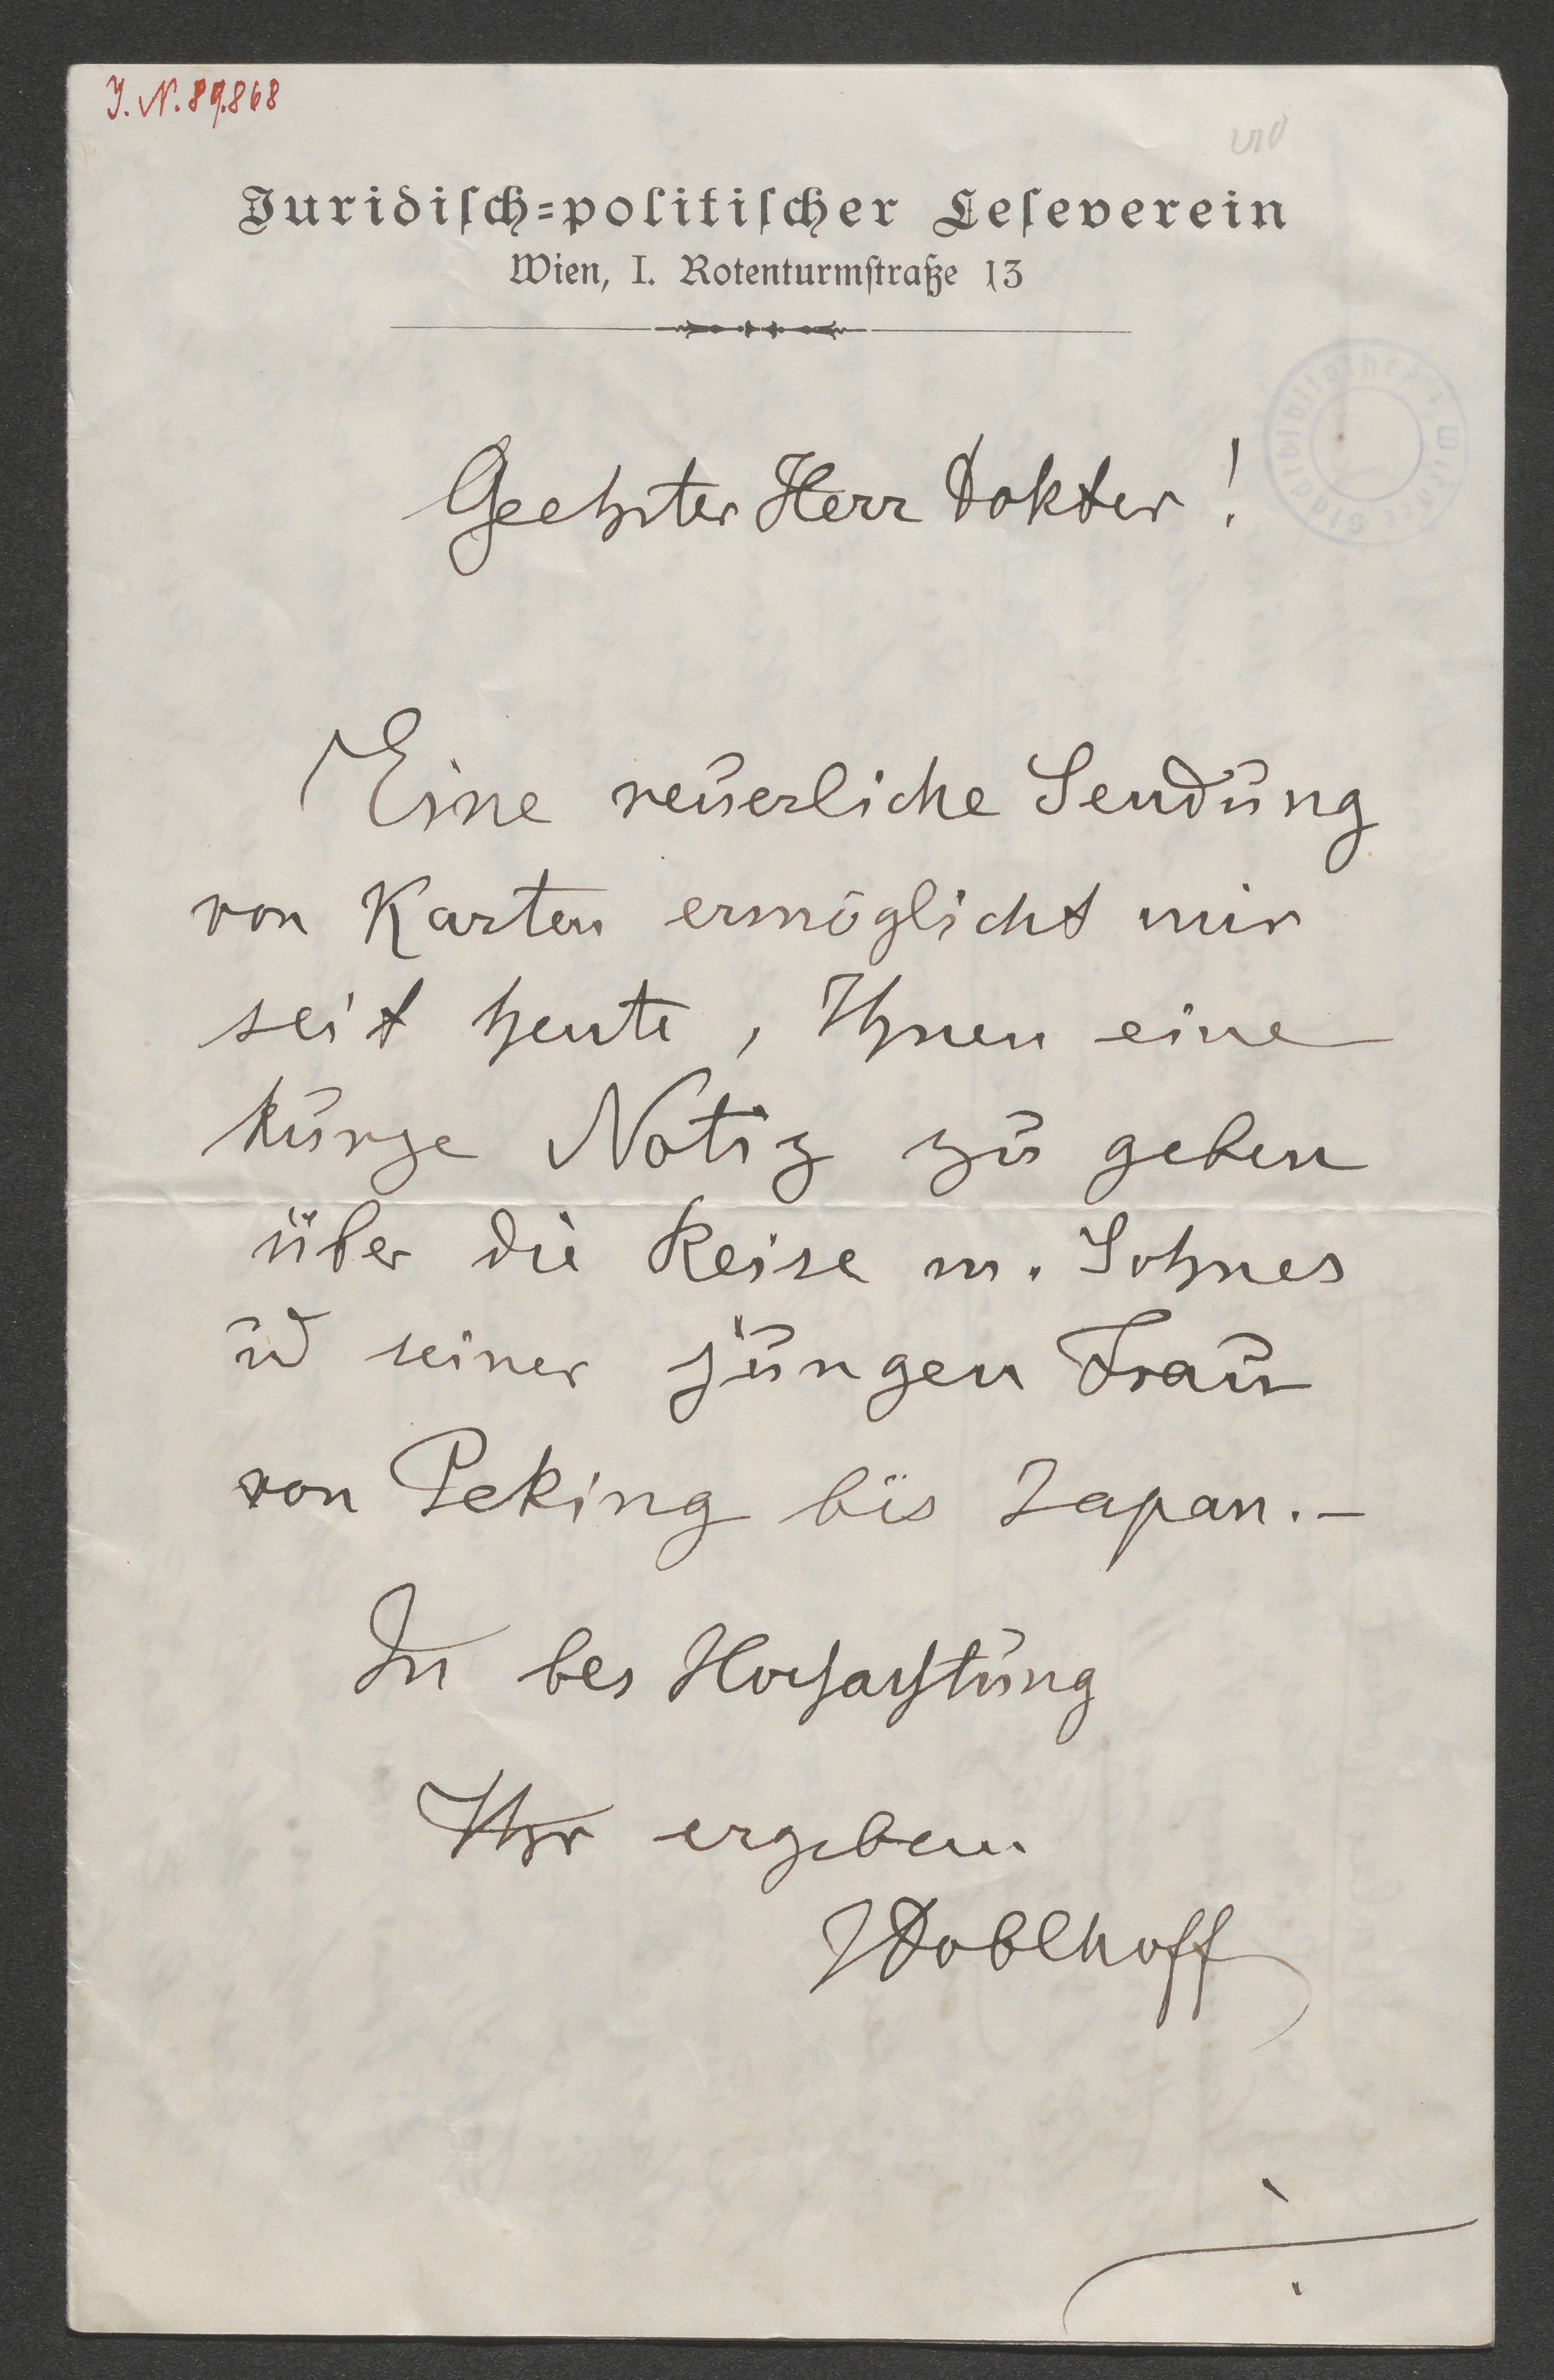 J. N. 89.868
Juridisch-politischer Leseverein
Wien, I. Rotenturmstraße 13
Stadtbibliothek + Wiener
Geehrter Herr Doktor!
Eine neuerliche Sendung
von Karten ermöglicht mir
seit heute, Ihnen eine
kurze Notiz zu geben
über die Reise m. Sohnes
ud seiner jungen Frau
von Peking bis Japan.-
In bes Hochachtung
Ihr ergeben.
JDoblhoff